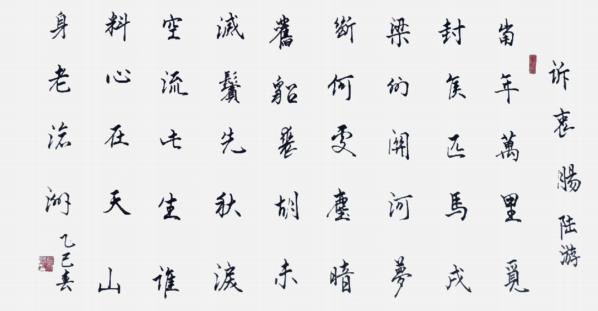 訴衷腸 陸游
當年萬里覓
封侯匹馬戍
梁州關河夢
斷何處塵暗
舊貂裘胡未
滅鬢先秋淚
空流此生誰
料心在天山
身老滄洲
乙巳春